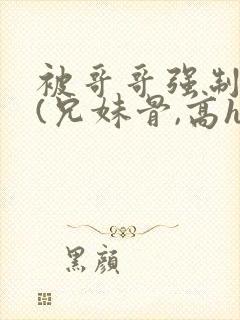 被哥哥强制
(兄妹骨,高h
黑颜